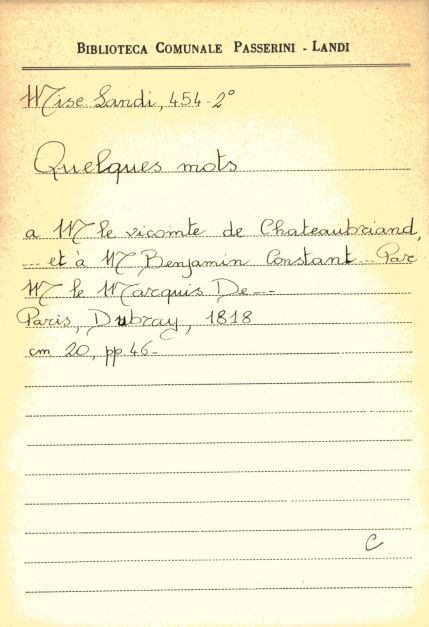 BIBLIOTECA COMUNALE PASSERINI - LANDI
Misc Landi, 454-2°
Quelques mots
a M le vicomte de Chateaubriand,
... et à M Benjamin Constant... Par
M le Marquis De---
Paris, Dubray, 1818
cm 20, pp 46-
C